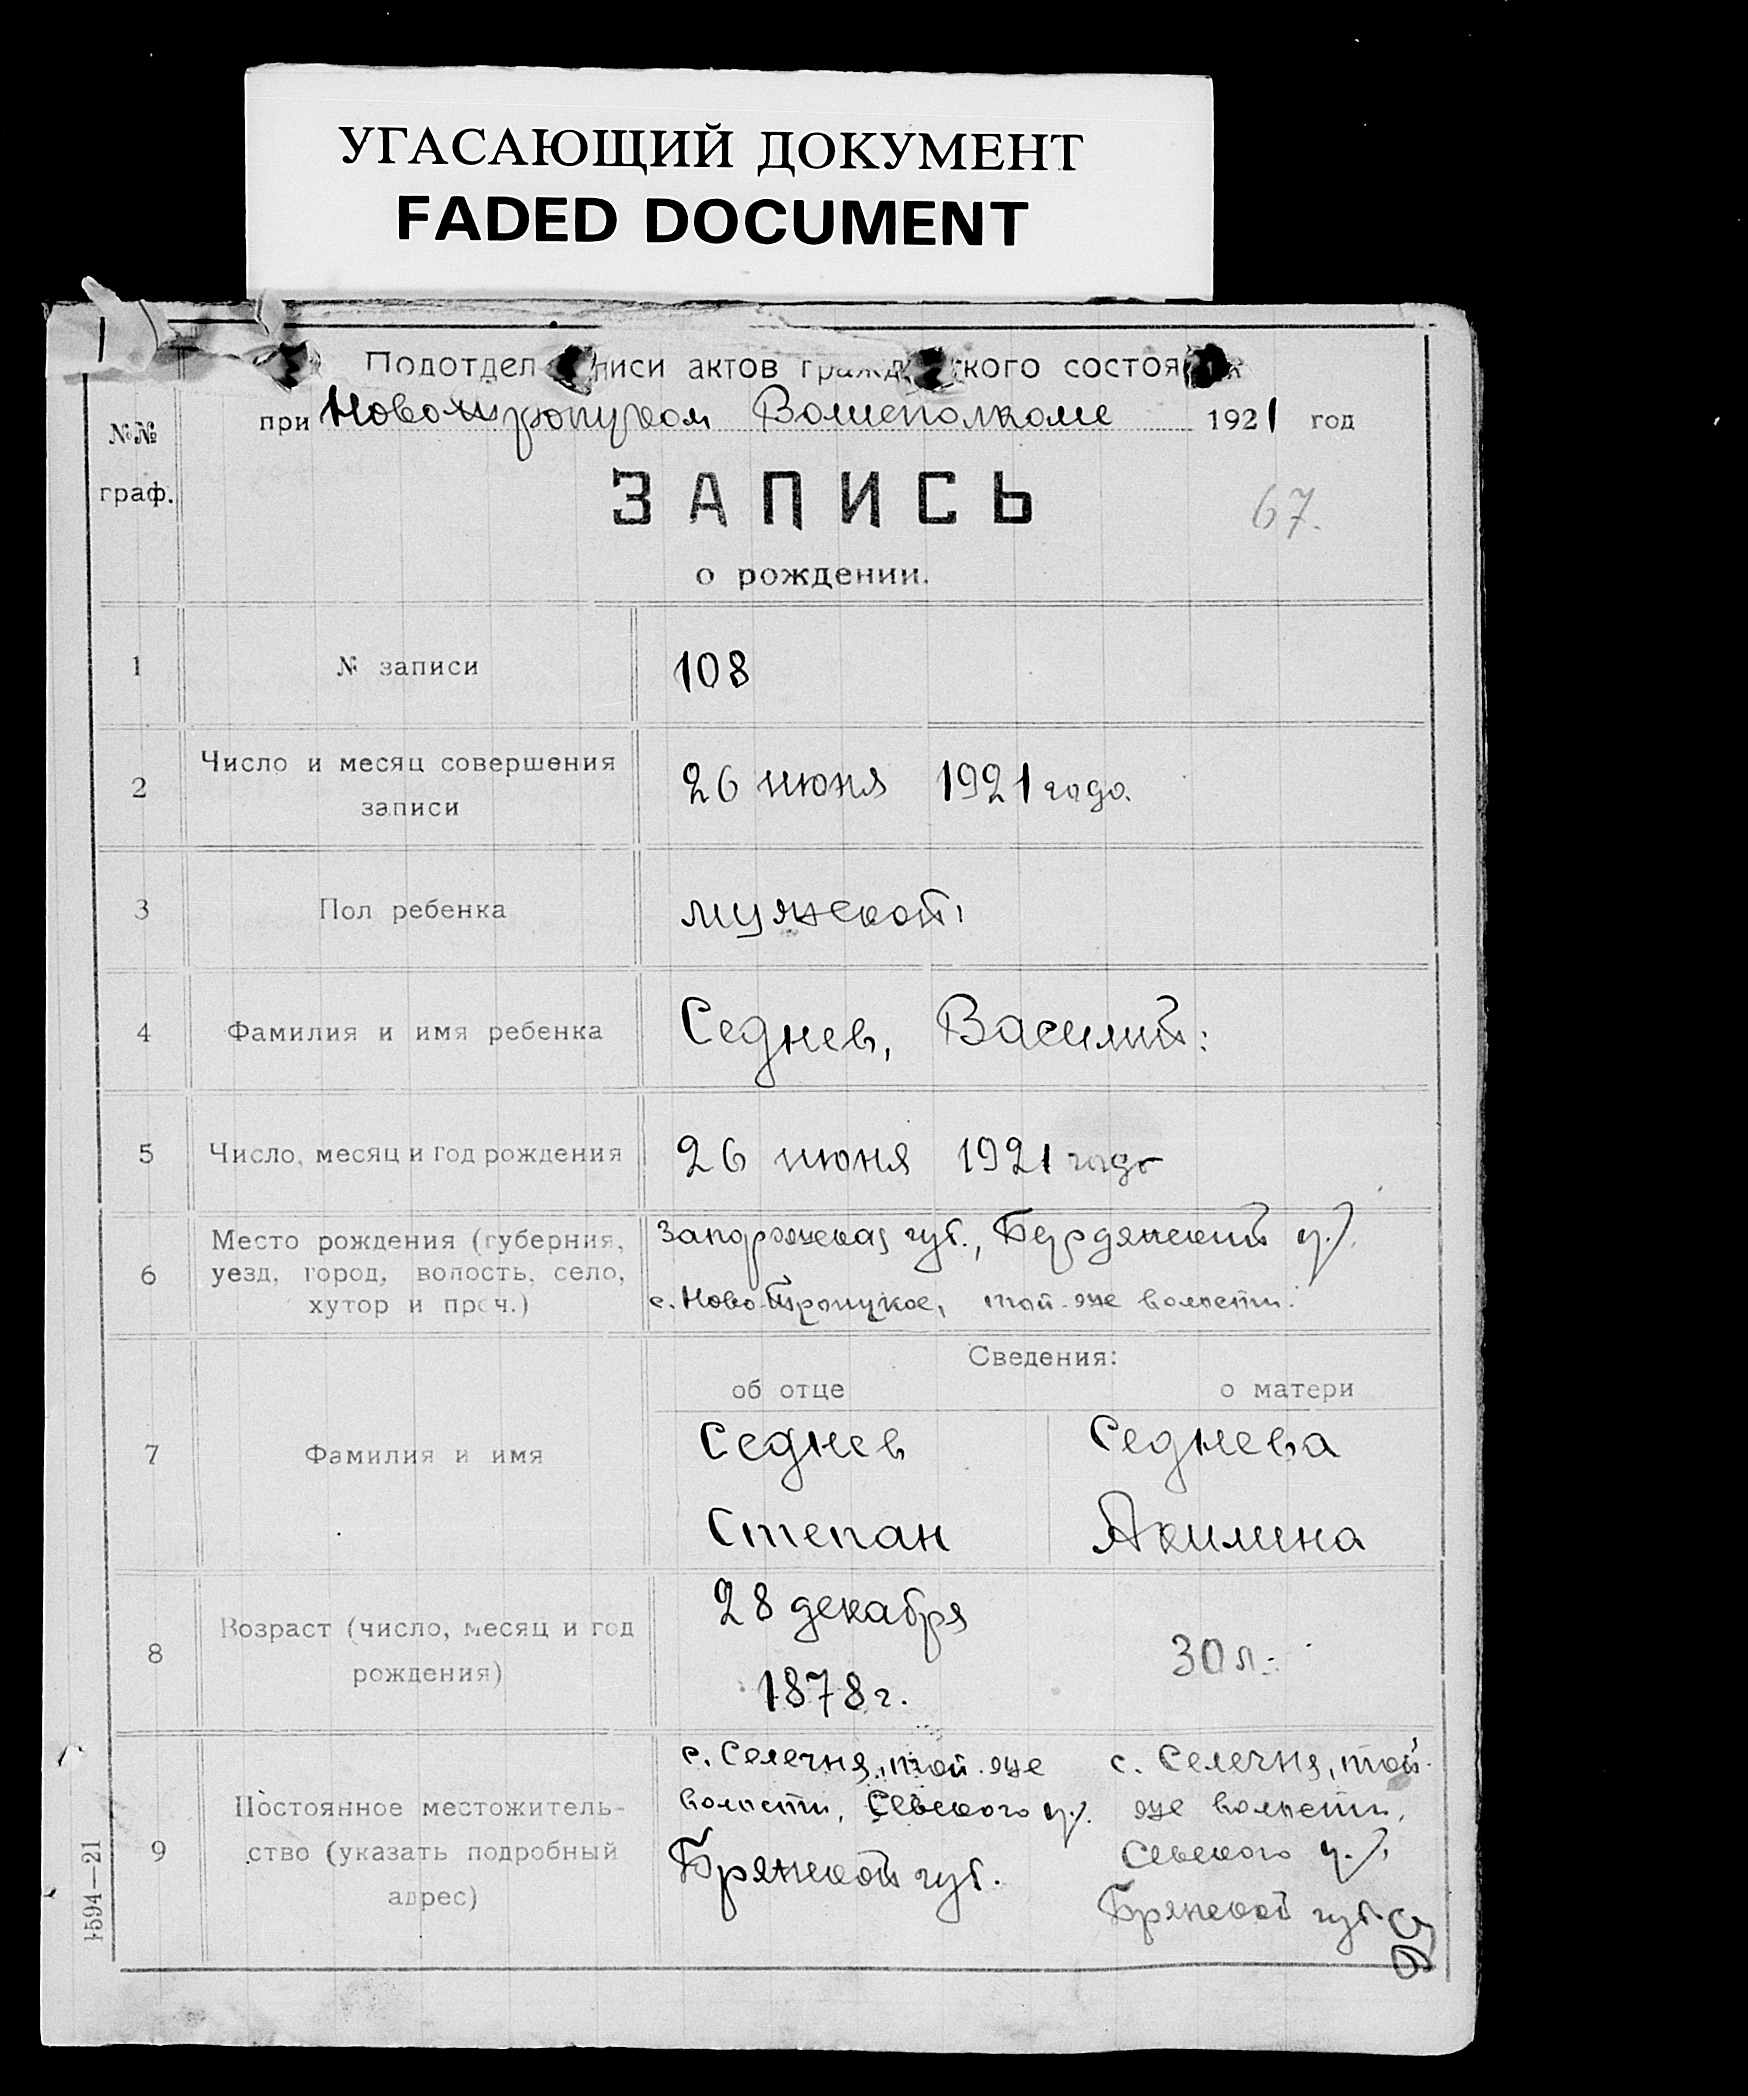 УГАСАЮЩИЙ ДОКУМЕНТ
FADED DOCUMENT
Подотдел писи актов гражд ского состоя
при Ново-Троицком Волисполкоме 1921 год
№№
граф.
ЗАПИСЬ
67.
о рождении.
1 № записи 108
2 Число и месяц совершения записи 26 июня 1921 года.
3 Пол ребенка мужской
4 Фамилия и имя ребенка Седнев, Василий:
5 Число, месяц и год рождения 26 июня 1921 года
6 Место рождения (губерния, уезд, город, волость, село, хутор и проч.)
Запорожская губ., Бердянский у.
с. Ново-Троицкое, той-же волости.
Сведения:
об отце о матери
7 Фамилия и имя
Седнев Седнева
Степан Акилина
8 Возраст (число, месяц и год рождения)
28 декабря
1878 г.
30 л.
9 Постоянное местожительство (указать подробный адрес)
с. Селечня, той-же
волости, Севского у.
Брянской губ.
с. Селечня, той-
же волости,
Севского у.,
Брянской губ.
1594—21